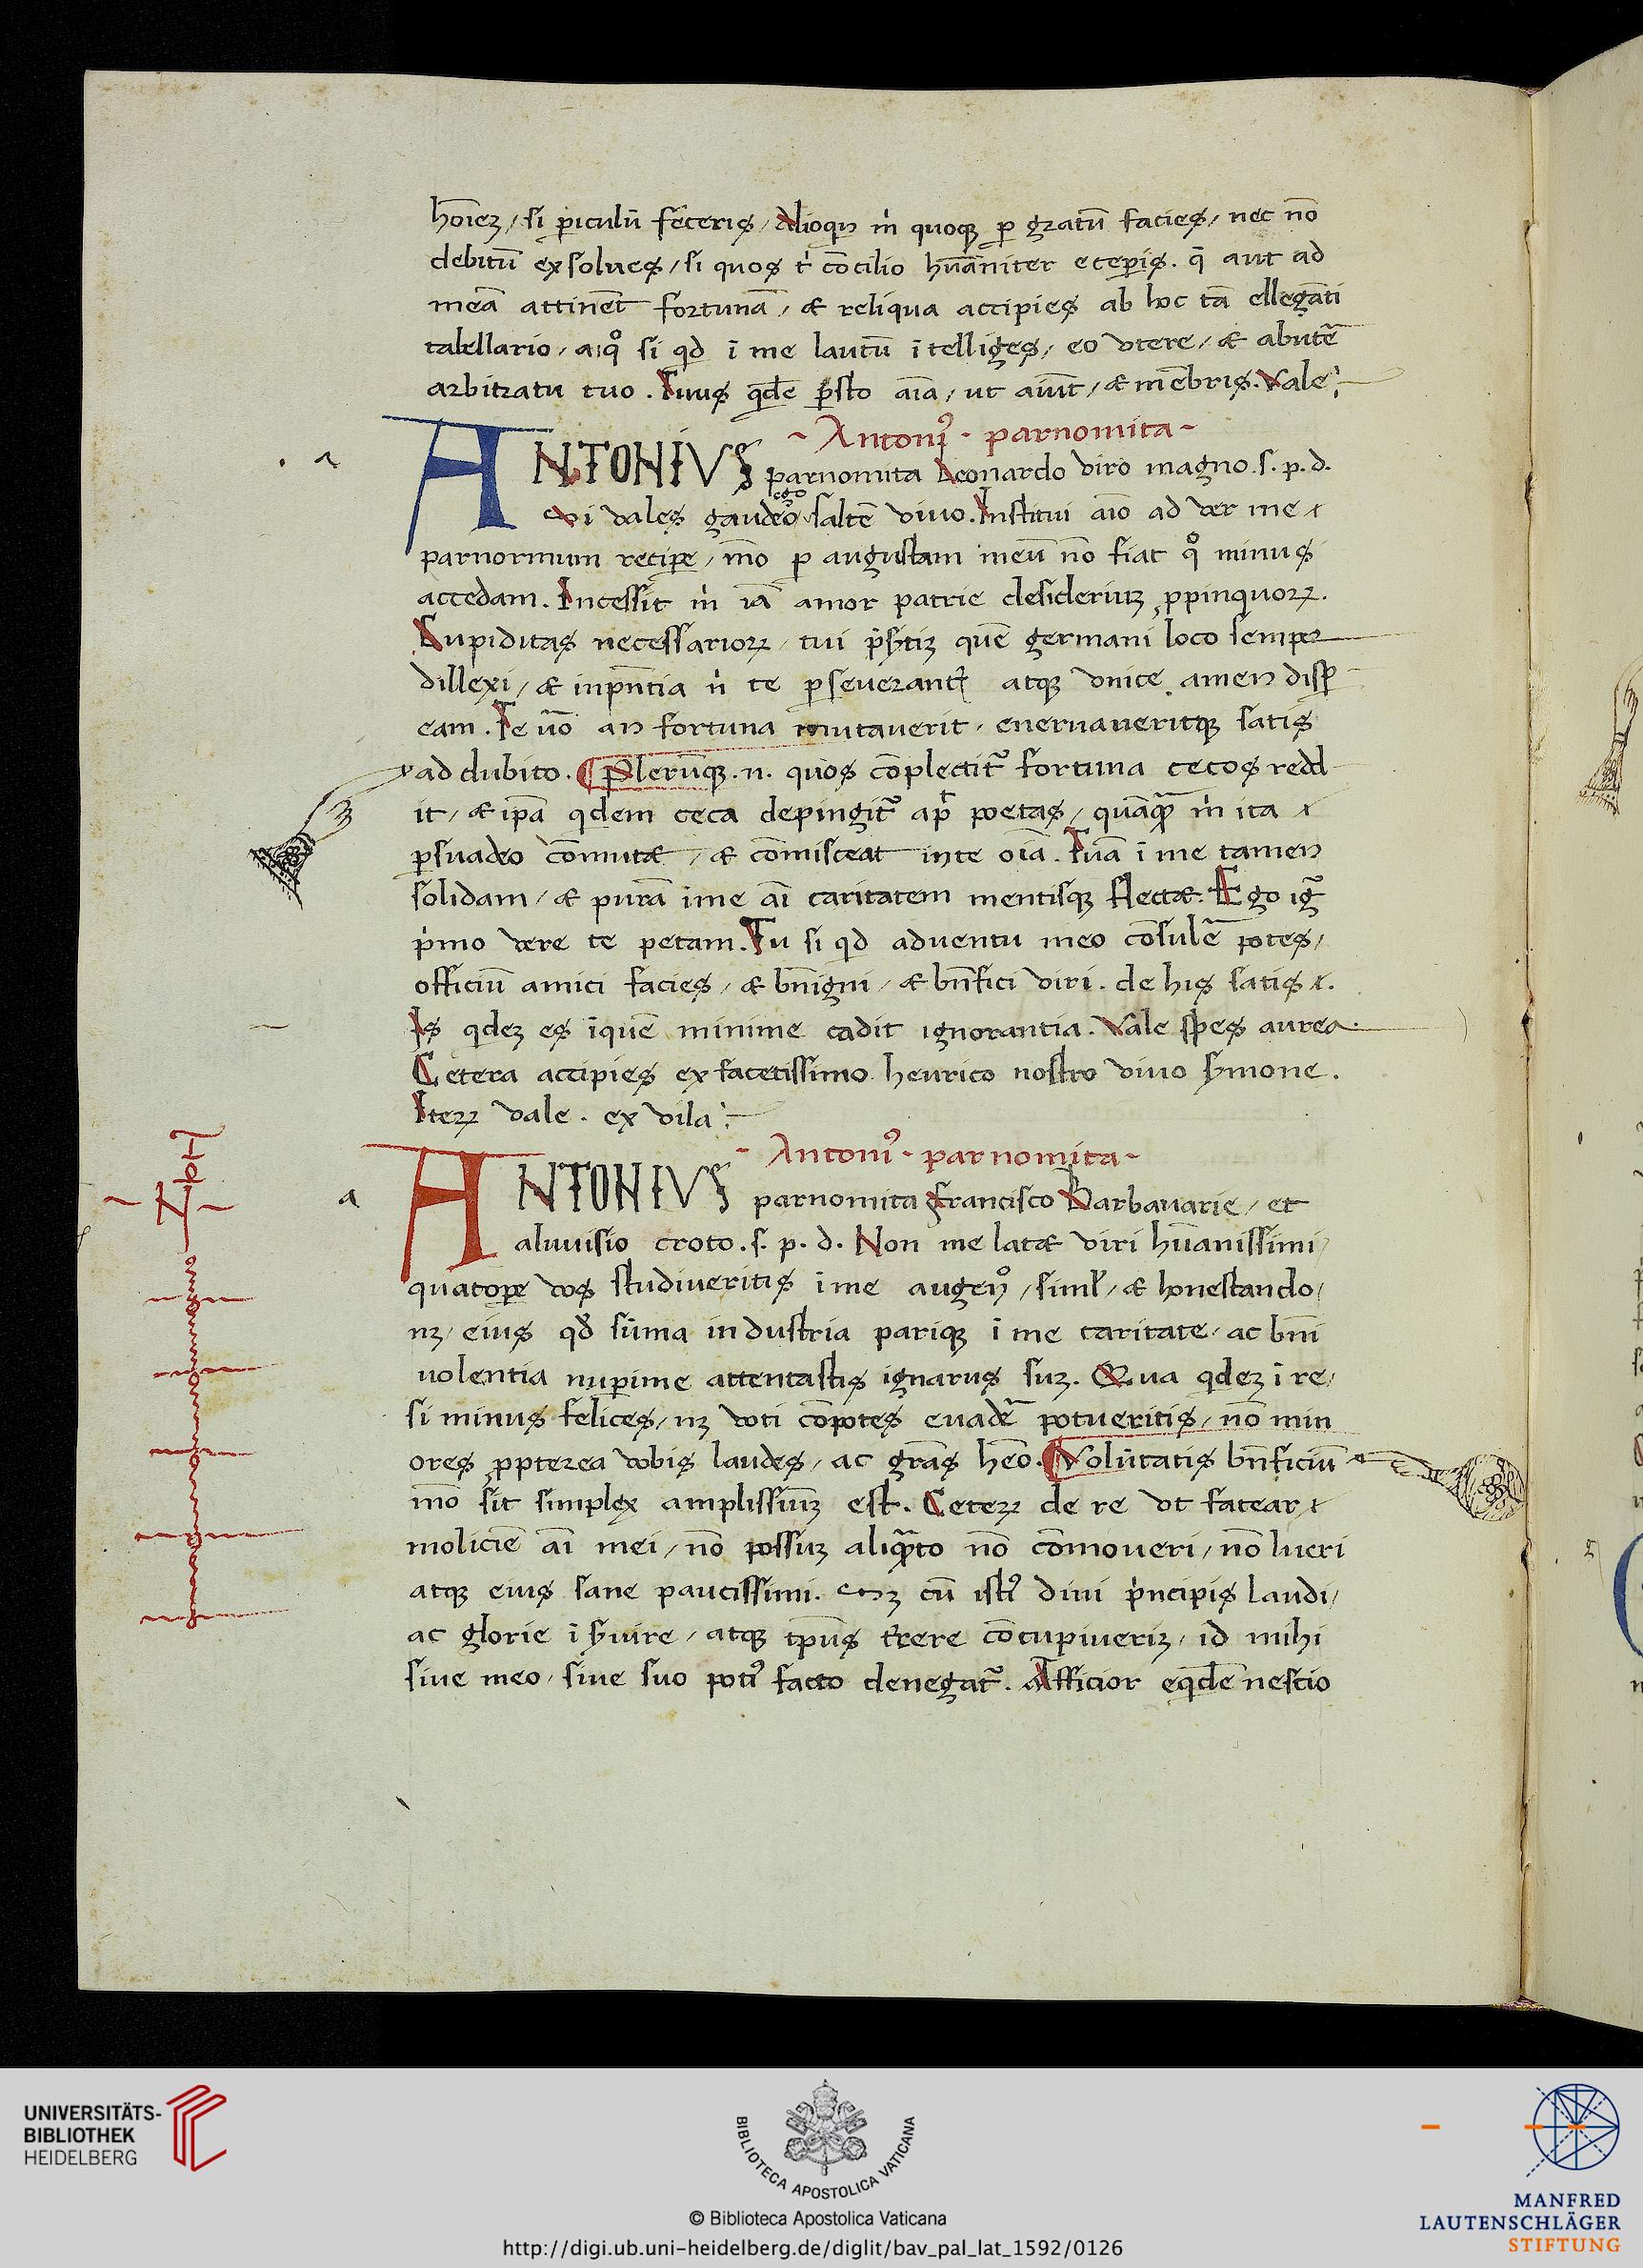 hōiez / si ꝑiculū feceris / Alioqn m̍ quoqꝫ ꝑ gratū facies / nec nō
debitū exsolues / si quos t̍ cōcilio hūāniter eceꝑis. q̄ aut ad
meā attinēt fortunā / & reliqua accipies ab hoc tā ellegāti
tabellario / a qͦ si qd ī me lautū ītelliges / eo vtere / & abutē
arbitratu tuo . Tuus qdē p̄sto aīa / ut aiūt / & mēbris. Vale
- Antoniꝰ - parnomita -
a
ANTONIVS parnomita Leonardo viro magno. s. p. d.
ego
vales gaudeo saltē viuo. Institui aīo ad ver me
parnormum reciꝑe / mō ꝑ augustam meū nō fiat qͦ minus
accedam. Incessit m̍ iā amor patrie desideriuꝫ ꝓpinquoꝝ.
Cupiditas necessarioꝝ / tui quē germani loco semper
dillexi / & te ꝑseuerant atqꝫ vnice amen disꝑ
eam . Te v̄o an fortuna mutauerit . eneruaueritqꝫ satis
ad dubito. Plerūqꝫ .n. quos cōplectit᷑ fortuna cecos redd
it / & ipā qdem ceca depingit᷑ apᷣ poetas / quāqᷓ m̍ ita
ꝑsuadeo cōmutæ / & cōmisceat inte oīa. Tuā ī me tamen
solidam / & purā ime aī caritatem mentisqꝫ flectæ. Ego ig᷑
p̍mo vere te petam. Tu si qd aduentu meo cōsulē potes /
officiū amici facies / & bn̄igni / & bn̄fici viri . de his satis.
Is qdeꝫ es īquē minime cadit ignorantia. Vale spes aurea.
Cetera accipies ex facetissimo henrico nostro viuo symone.
Iteꝝ vale . ex vila
- Antoniꝰ - parnomita -
Not
N
a
ANTONIVS parnomita Francisco Barbauarie / et
aluuisio croto. s. p. d. Non me latæ viri hūanissimi /
quatoꝑe vos studiueritis ī me / siml̍ / & honestando /
nꝫ / eius qd̍ sūma industria pariqꝫ ī me caritate / ac bn̄i
uolentia nuꝑime attentastis ignarus suꝫ. Qua qdeꝫ ī re /
si minus felices / nꝫ voti cōpotes euadē potueritis / nō min
ores ꝓpterea vobis laudes / ac grās hēo. Volūtatis bn̄ficiū
mō sit simplex amplissimꝫ est. Ceteꝝ de re vt fatear
moliciē aī mei / nō possuꝫ aliqᷓto nō cōmoueri / nō lueri
atqꝫ eius sane paucissimi. cū istꝰ diui p̍ncipis laudi /
ac glorie ī / atqꝫ tp̄us cōcupiueriꝫ / id mihi
siue meo / siue suo potiꝰ facto denegat᷑. Afficior eqdē nescio
UNIVERSITÄTS-
BIBLIOTHEK
HEIDELBERG
BIBLIOTECA APOSTOLICA VATICANA
© Biblioteca Apostolica Vaticana
http://digi.ub.uni-heidelberg.de/diglit/bav_pal_lat_1592/0126
MANFRED
LAUTENSCHLÄGER
STIFTUNG